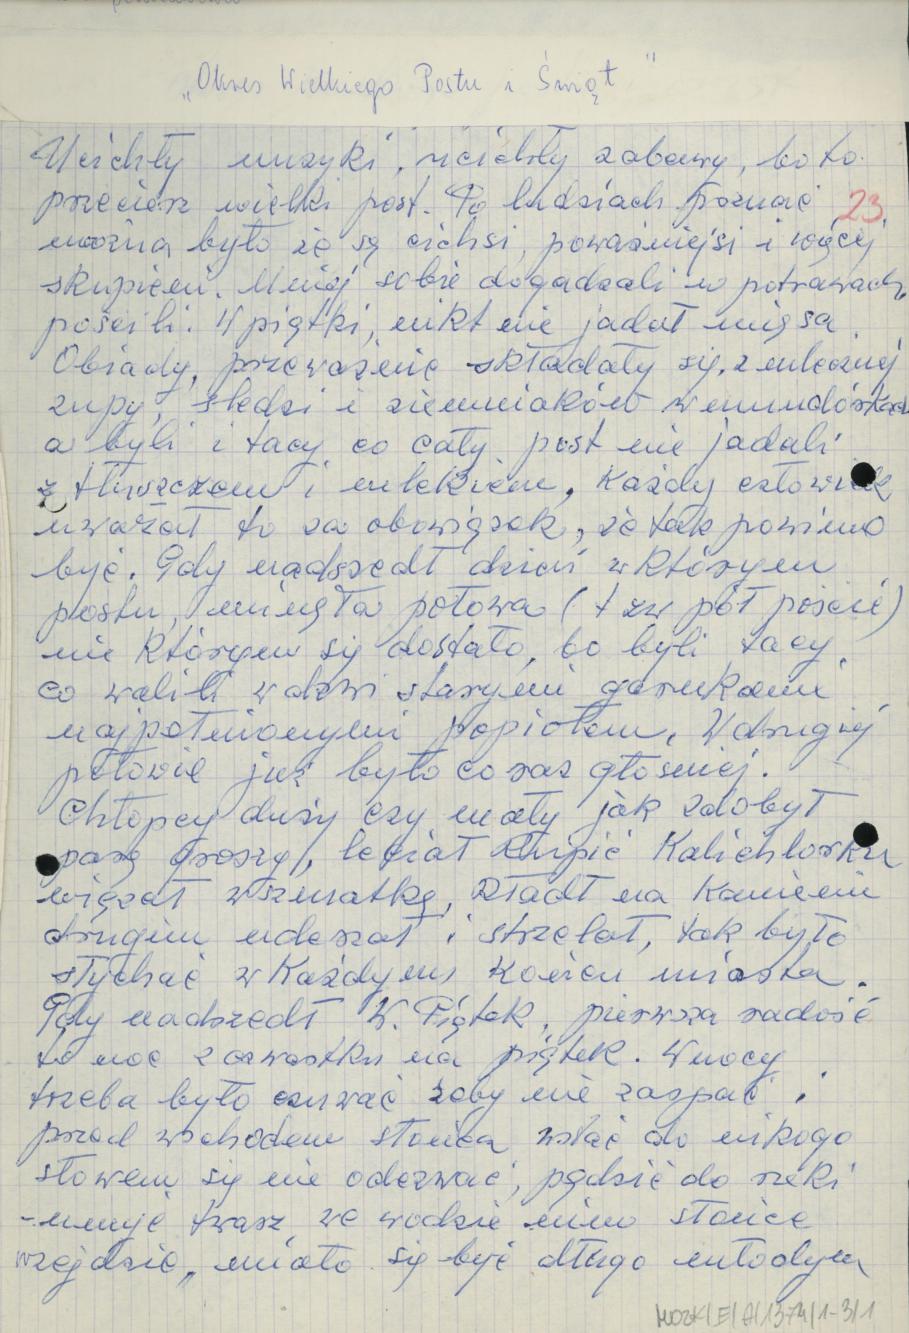 „Okres Wielkiego Postu i Świąt"
23
Ucichły muzyki, ucichły zabawy, bo to
przecież wielki post. Po ludziach poznać
można było że są cichsi, poważniejsi i więcej
skupieni. Mniej sobie dogadzali w potrawach,
pościli. W piątki, nikt nie jadał mięsa.
Obiady, przeważnie składały się, z mlecznej
zupy, śledzi i ziemniaków w mundórkach
a byli i tacy co cały post nie jadali
z tłuszczem i mlekiem. Każdy człowiek
uważał to za obowiązek, że tak powinno
być. Gdy nadszedł dzień w którym
postu, minęła połowa (tzw pół poście)
nie którym się dostało, bo byli tacy
co walili w drzwi starymi garnkami
napołnionymi popiołem. W drugiej
połowie już było co raz głośniej.
Chłopcy duży czy mały jak zdobył
parę groszy, leciał kupić Kalichlorku
wiązał w szmatkę, kładł na kamieniu
drugim uderzał i strzelał, tak było
słychać w każdym końcu miasta.
Gdy nadszedł W. Piątek, pierwsza radość
to noc z czwartku na piątek. W nocy
trzeba było czuwać żeby nie zaspać i
przed wschodem słońca wstać do nikogo
słowem się nie odezwać, pędzić do rzeki
umyć twarz we wodzie nimo słońce
wzejdzie, miało się być długo młodym
MOZK/E/A/1374/1-3/1